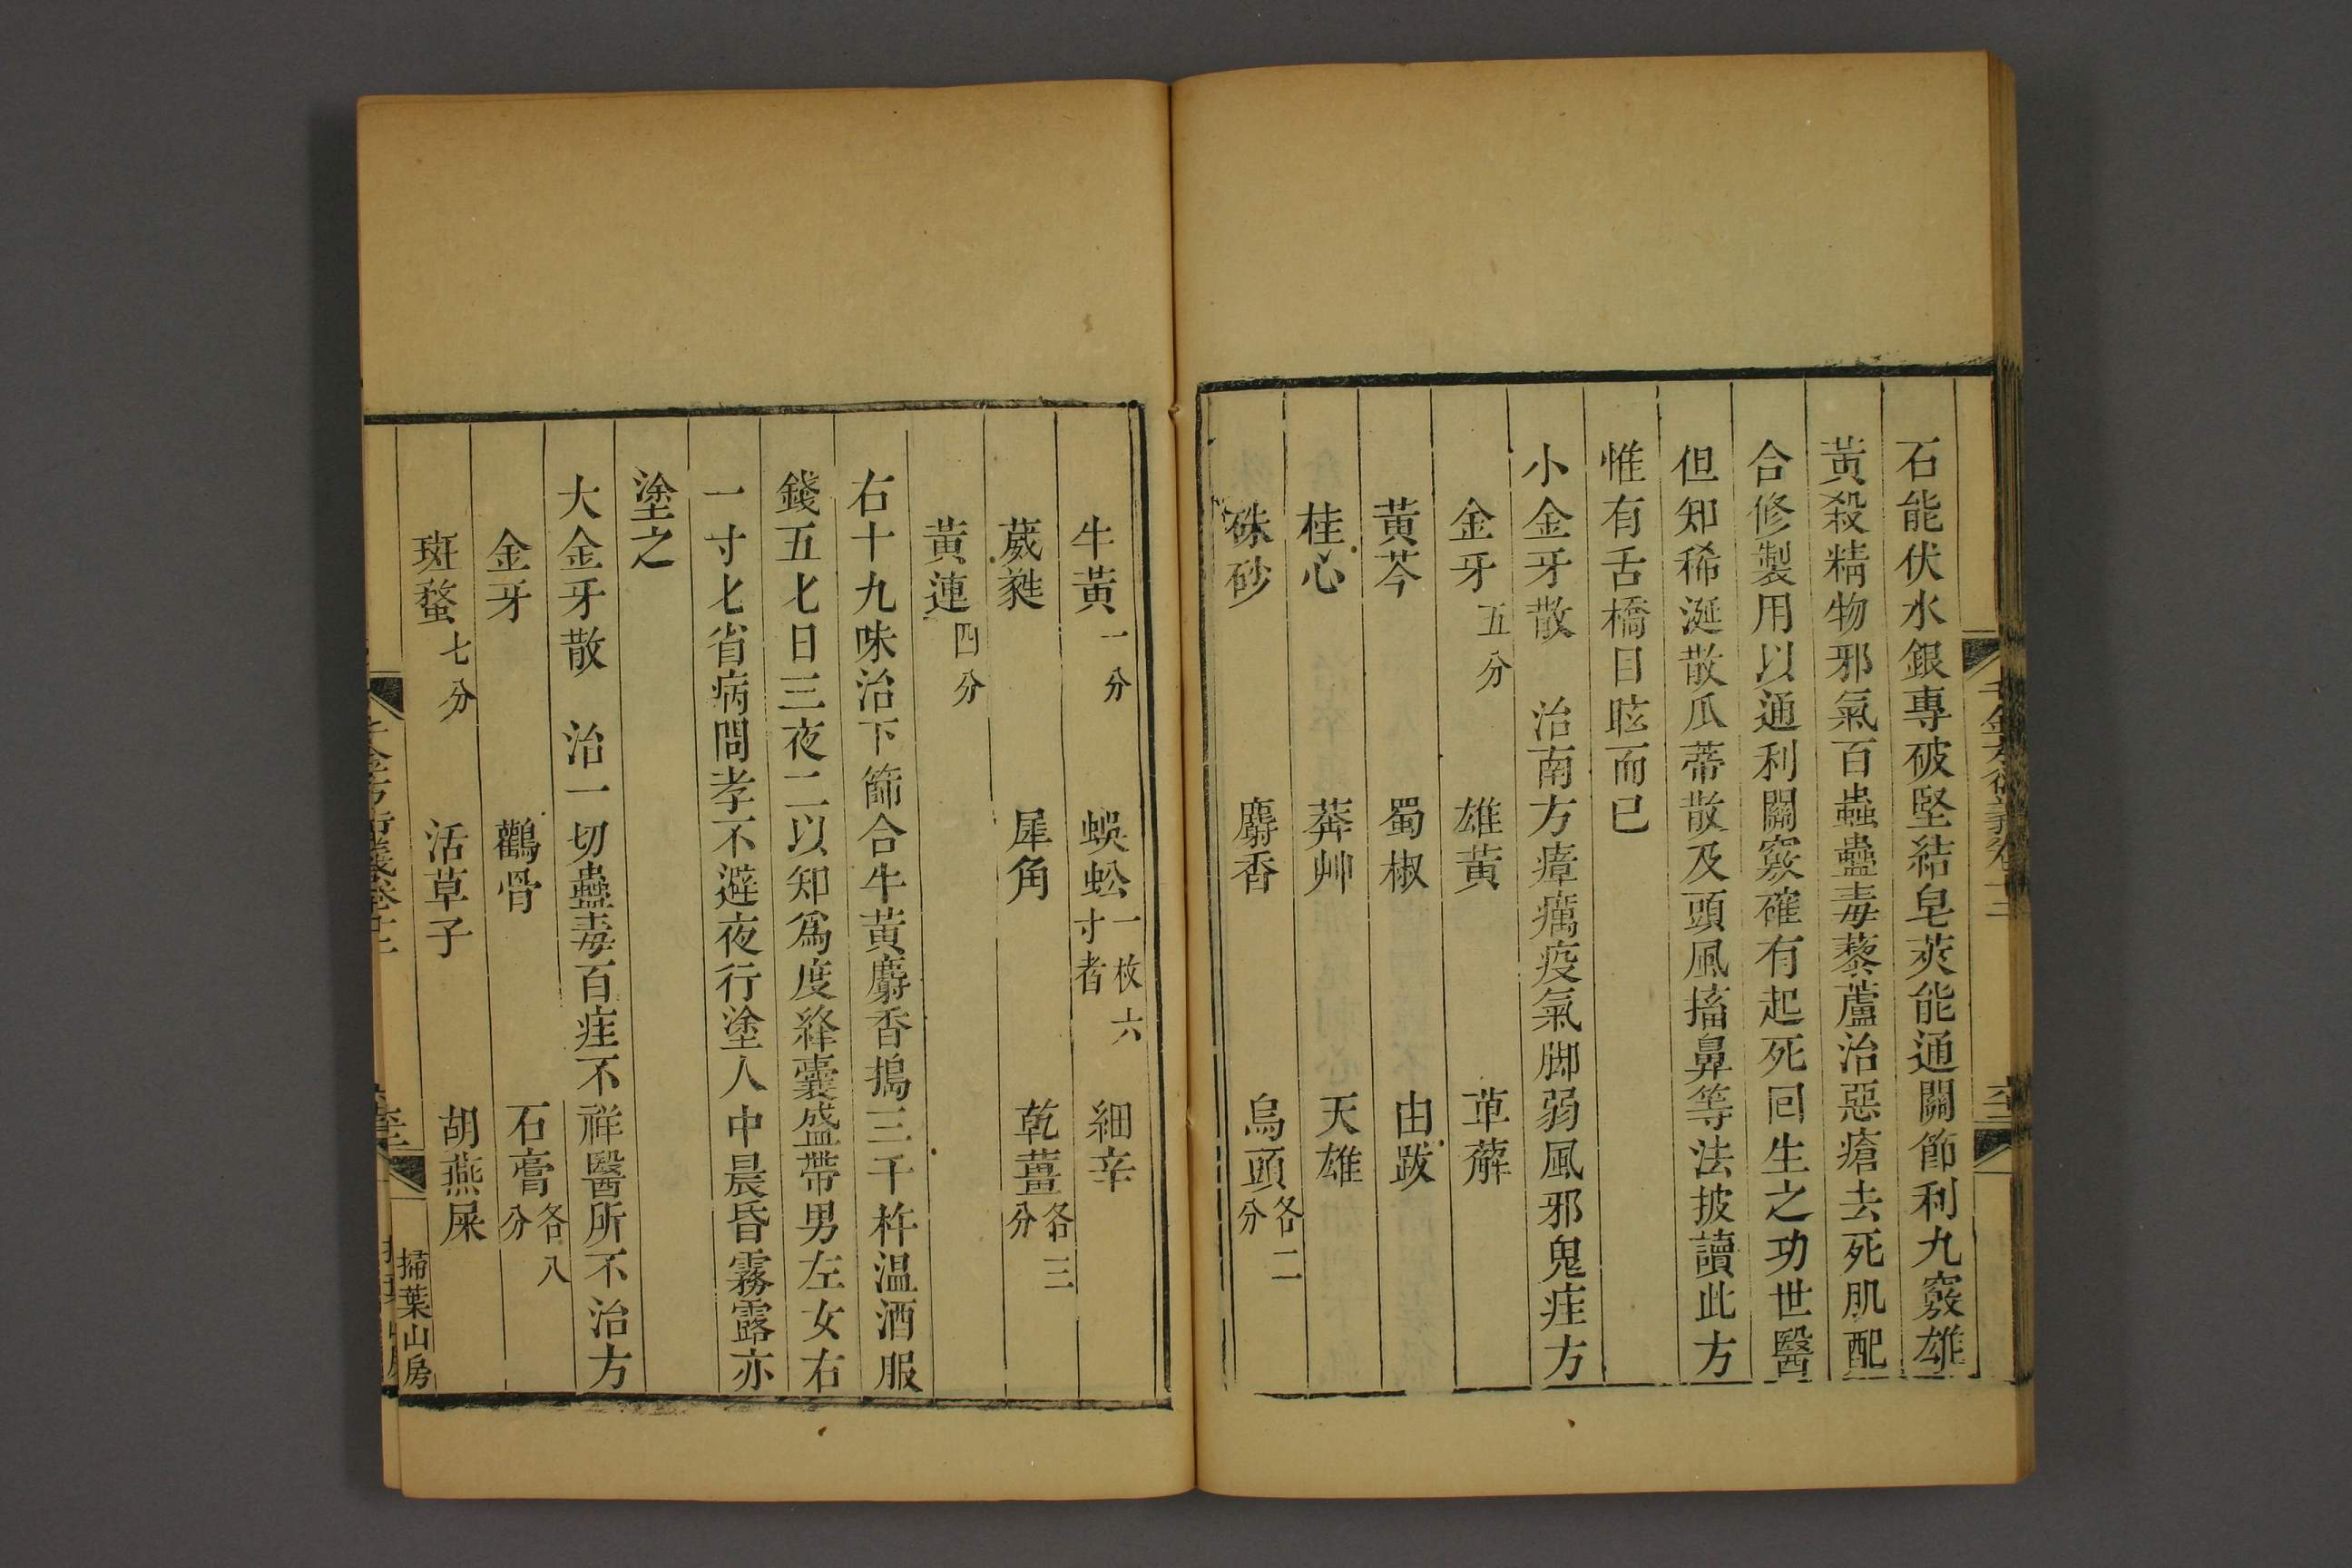 石能伏水銀專破堅結皂莢能通關節利九竅雄
黃殺精物邪氣百蟲蠱毒藜蘆治惡瘡去死肌配
合修製用以通利關竅確有起死回生之功世醫
但知稀涎散瓜蒂散及頭風搐鼻等法披讀此方
惟有舌橋目眩而已
小金牙散 治南方瘴癘疫氣脚弱風邪鬼疰方
金牙五分 雄黃 萆薢
黃芩 蜀椒 由跋
桂心 莽艸 天雄
硃砂 麝香 烏頭各二分
牛黃一分 蜈蚣一枚六寸者 細辛
葳蕤 犀角 乾薑各三分
黃連四分
右十九味治下篩合牛黃麝香搗三千杵温酒服
錢五匕日三夜二以知爲度絳囊盛帶男左女右
一寸匕省病問孝不避夜行塗人中晨昏霧露亦
塗之
大金牙散 治一切蠱毒百疰不祥醫所不治方
金牙 鸛骨 石膏各八分
斑蝥七分 活草子 胡燕屎
千金方衍義卷十二
掃葉山房